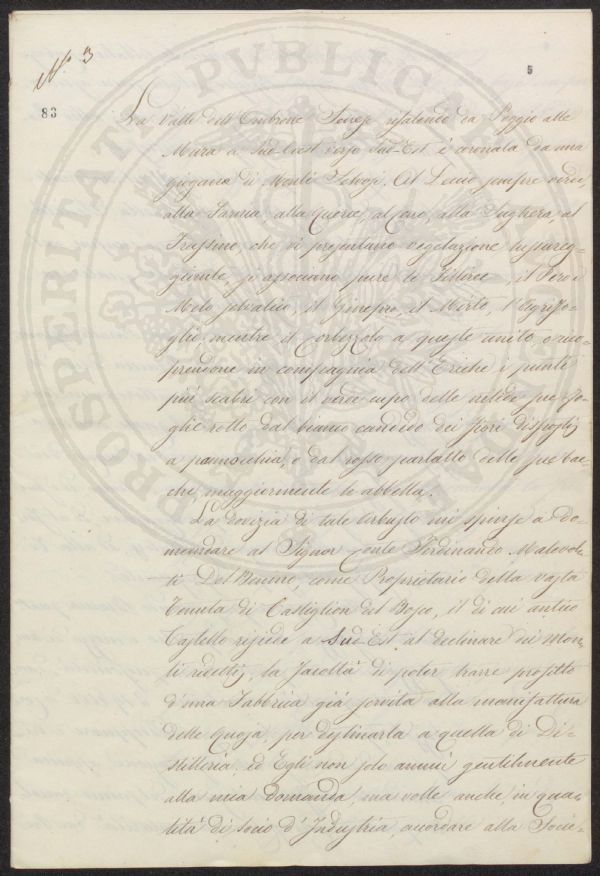 N.° 3
5
83
La Valle dell'Ombrone Senese risalendo da Poggio alle
Mura a Sud-Ovest verso Sud-Est è coronata da una
giogana di Monti Selvosi. Al Leccio sempre verde,
alla Farnia, alla Querce, al Cerro, alla Sughera, al
Frassino, che vi presentano vegetazione lussureg=
giante, si associano pure le Filliree, il Pero e
Melo selvatico, il Ginepro, il Mirto, l'Agrifo=
glio, mentre il Corbezzolo a queste unito, o suo=
prendone in compagnia dell'Eriche i punti
più scabri con il verde cupo delle nitide sue fo=
glie rotto dal bianco candido dei fiori disposti
a pannocchia, o dal rosso scarlatto delle sue bac=
che, maggiormente le abbella.
La dovizia di tale Arbusto mi spinse a do=
mandare al Signor Conte Ferdinando Malavol=
ti Del Benino, come Proprietario della vasta
Tenuta di Castiglion del Bosco, il di cui antico
Castello risiede a Sud-Est al declinare dei Mon=
ti ridetti, la facoltà di poter trarre profitto
d'una Fabbrica già servita alla manifattura
delle Quoja, per destinarla a quella di Di=
stilleria, ed Egli non solo annuì gentilmente
alla mia Domanda, ma volle anche, in qua=
lità di Socio d'Industria, accordare alla Socie=
PROSPERITATI PVBLICAE